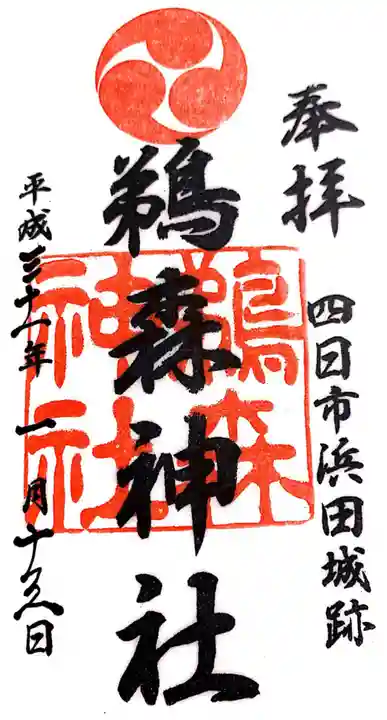 奉拝
四日市浜田城跡
鵜森神社
鵜森神社
平成三十一年一月十九日